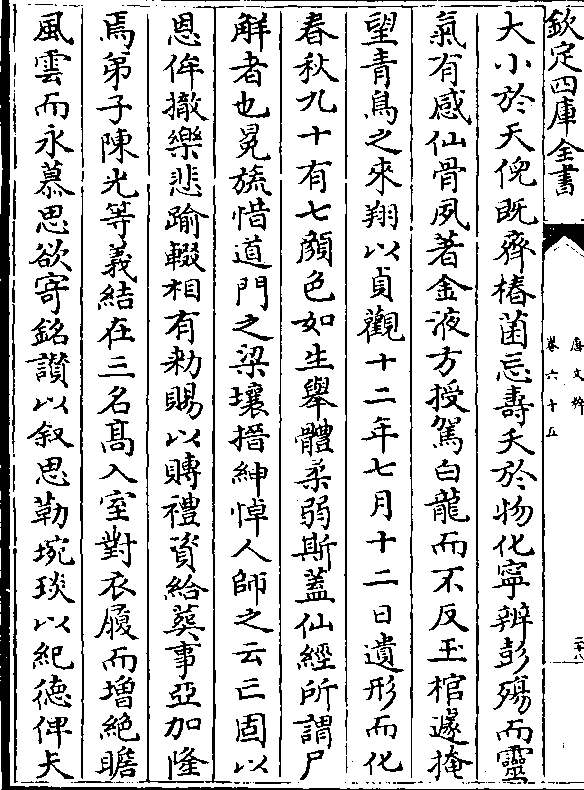 欽定四庫全書
唐文粹
卷六十五
大小於天倪既齊椿菌忘壽夭於物化寧辨彭殤而靈
氣有感仙骨夙著金液方授駕白龍而不反玉棺遽掩
望青鳥之來翔以貞觀十二年七月十二日遺形而化
春秋九十有七顔色如生舉體柔弱斯蓋仙經所謂尸
解者也冕旒惜道門之梁壞搢紳悼人師之云亡固以
恩侔撤樂悲踰輟相有勅賜以賻禮資給葬事亞加隆
焉弟子陳光等義結在三名髙入室對衣履而增絶瞻
風雲而永慕思欲寄銘讃以叙思勒琬琰以紀德俾夫